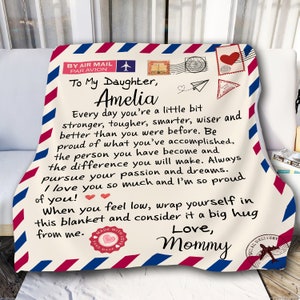 BY AIR MAIL
PAR AVION
To My Daughter,
Amelia
Every day you're a little bit
stronger, tougher, smarter, wiser and
better than you were before. Be
proud of what you've accomplished,
the person you have become and
the difference you will make. Always
pursue your passion and dreams.
I love you so much and I'm so proud
of you!
When you feel low, wrap yourself in
this blanket and consider it a big hug
from me.
Love,
Mommy